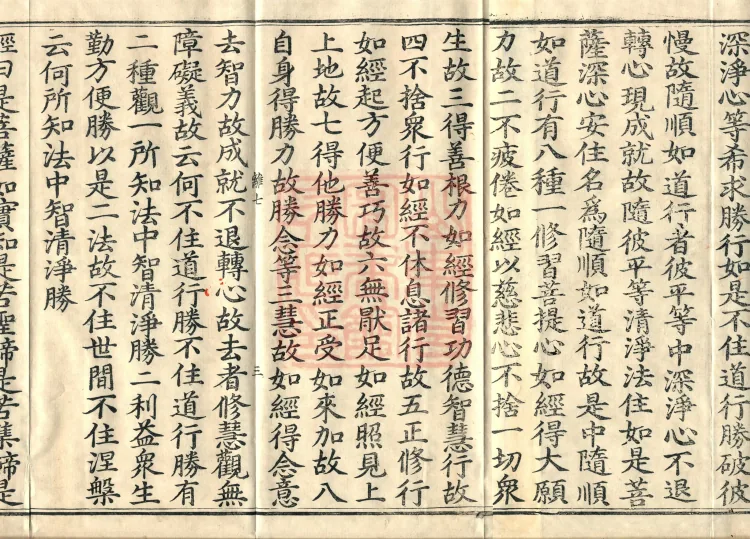 深淨心等希求勝行如是不住道行勝破彼
慢故隨順如道行者彼平等中深淨心不退
轉心現成就故隨彼平等清淨法住如是菩
薩深心安住名爲隨順如道行故是中隨順
如道行有八種一修習菩提心如經得大願
力故二不疲倦如經以慈悲心不捨一切衆
生故三得善根力如經修習功德智慧行故
四不捨衆行如經不休息諸行故五正修行
如經起方便善巧故六無猒足如經照見上
上地故七得他勝力如經正受如來加故八
自身得勝力故勝念等三慧故如經得念意
雞七
三
去智力故成就不退轉心故去者修慧觀無
障礙義故云何不住道行勝不住道行勝有
二種觀一所知法中智清淨勝二利益衆生
勤方便勝以是二法故不住世間不住涅槃
云何所知法中智清淨勝
經曰是菩薩如實知是苦聖諦是苦集諦是